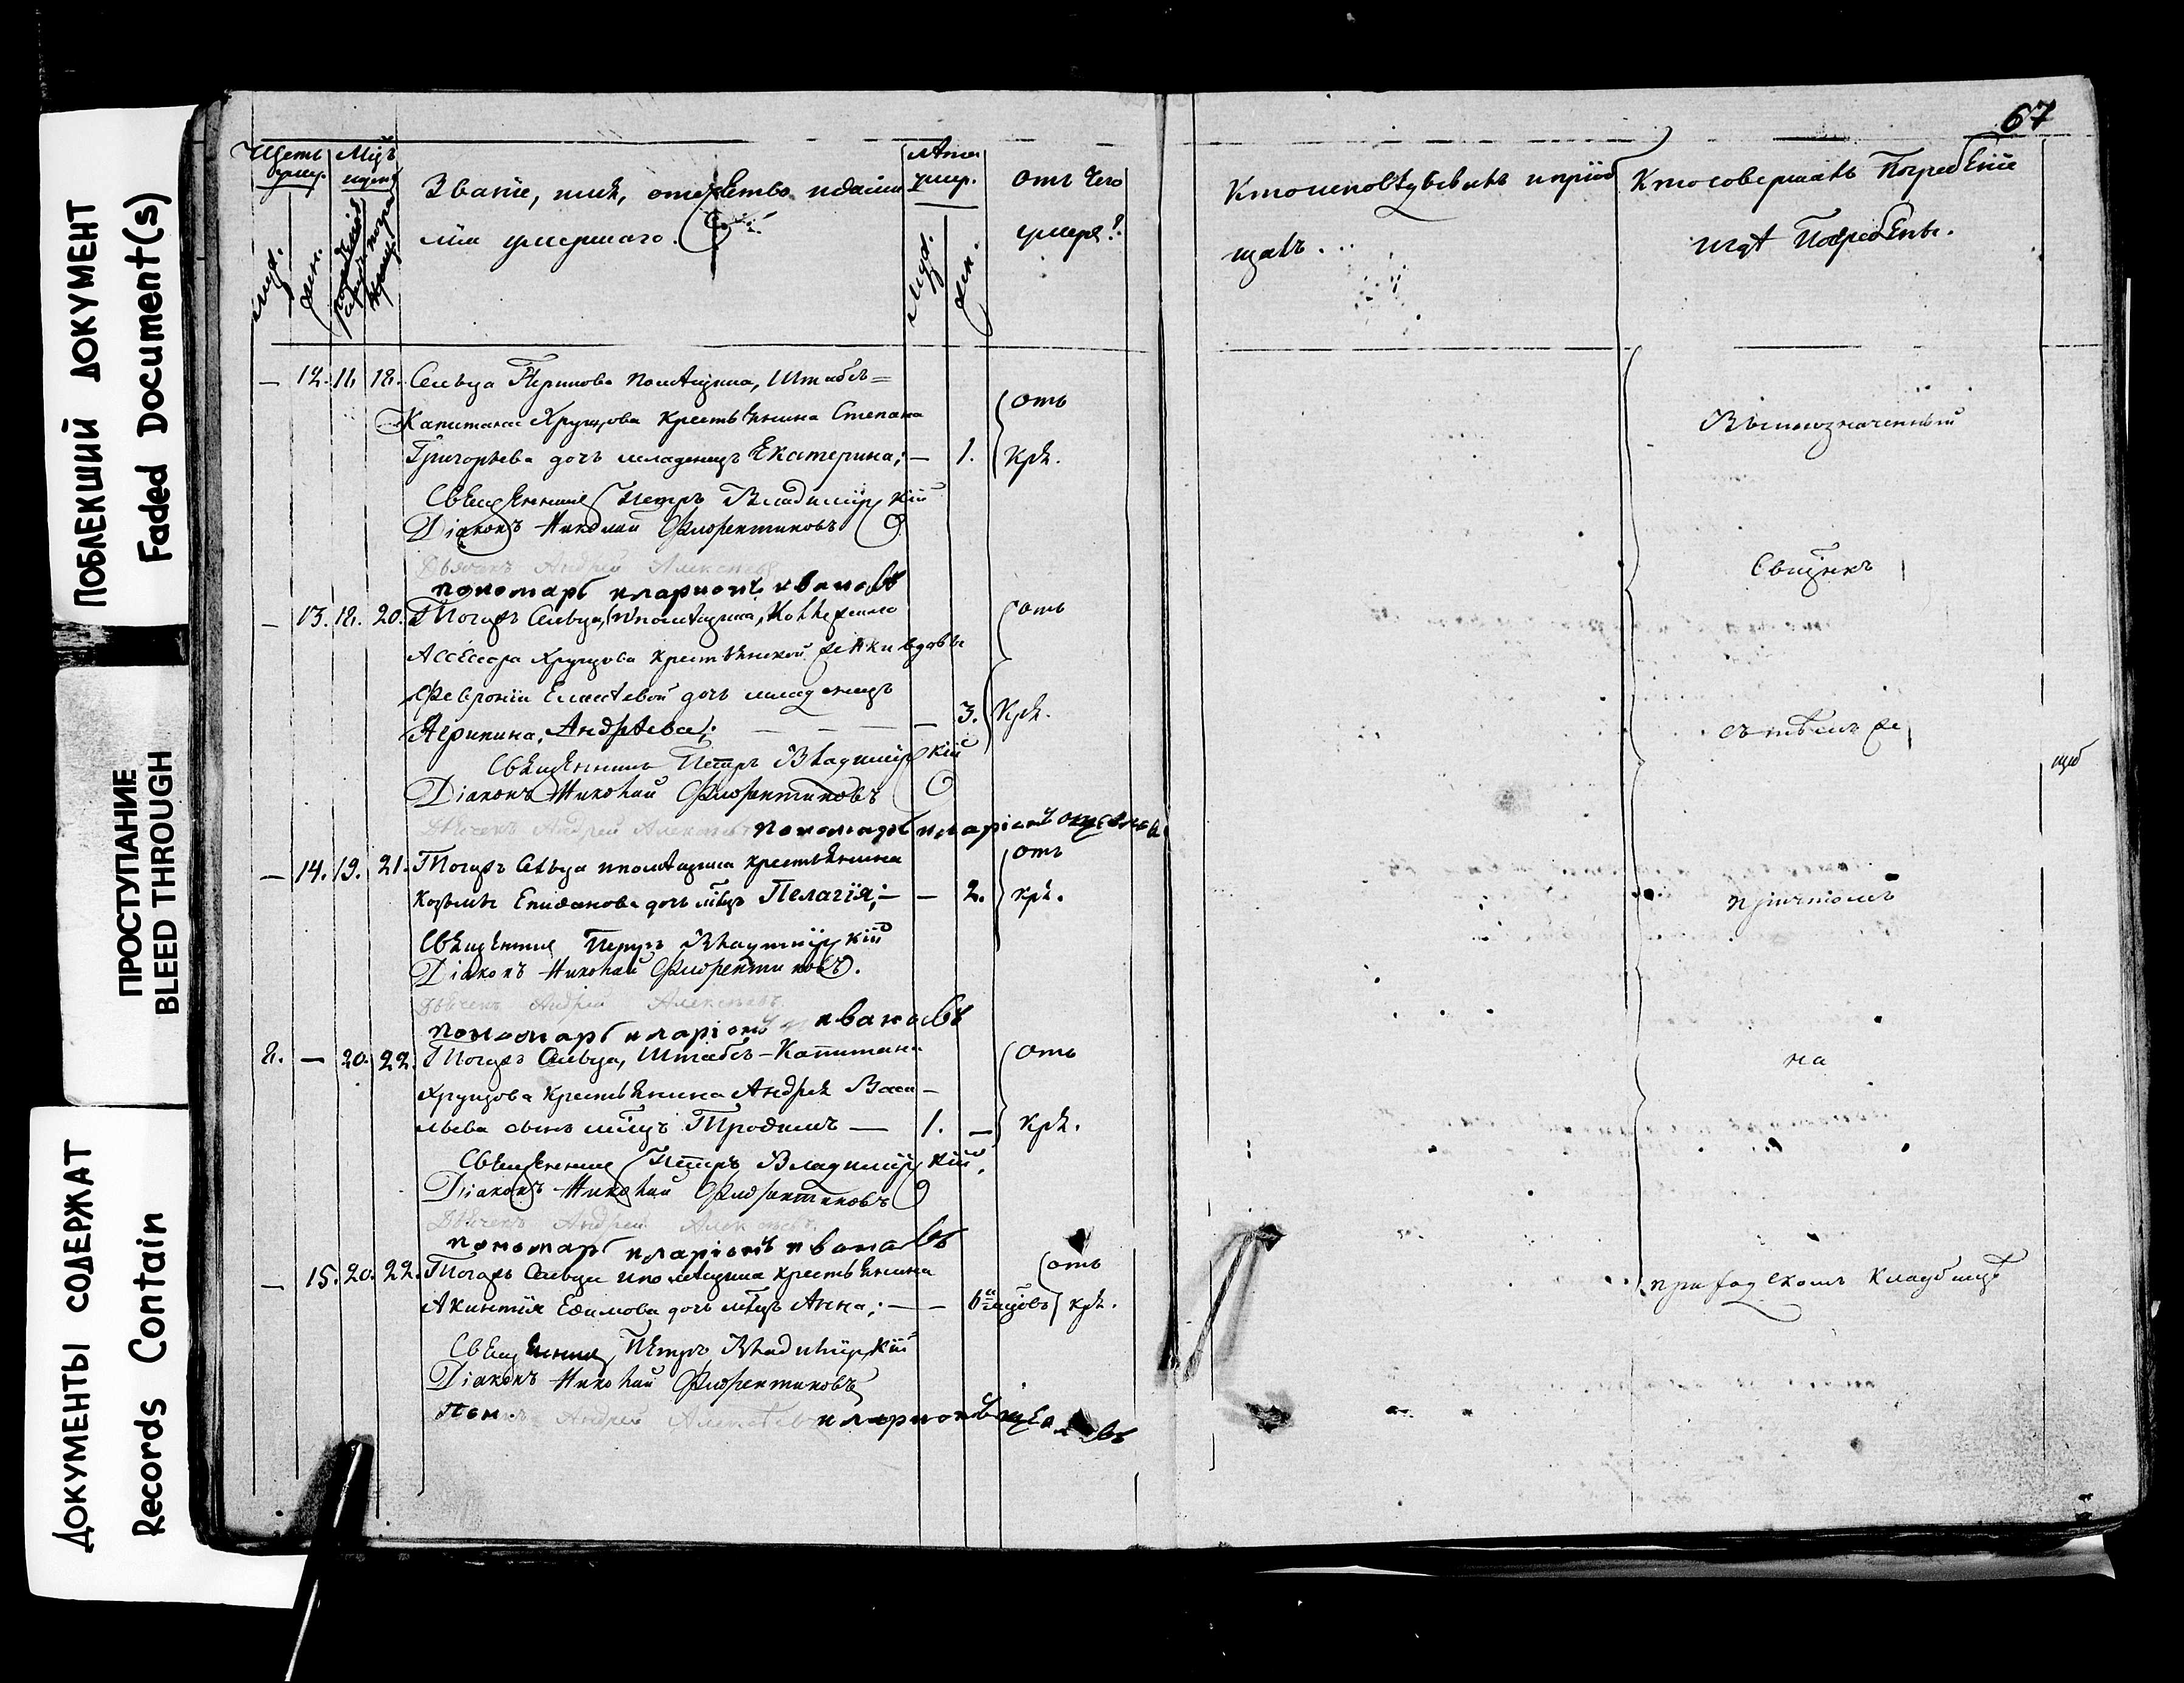 67
ПОБЛЕКШИЙ ДОКУМЕНТ
Faded Document(s)
ПРОСТУПАНИЕ
BLEED THROUGH
ДОКУМЕНТЫ СОДЕРЖАТ
Records Contain
Щетъ умер.
муж.
жен.
Званіе, имя, отечество и фами
лія умершаго.
Лѣта умер.
муж.
жен.
отъ чего
умеръ?
Кто исповѣдывалъ и пріоб
щалъ.
Кто совершалъ Погребеніе
и гдѣ Погребены.
— 12. 11. 18. Сельца помѣщика, Штабсъ=
Капитана Хрущова Крестьянина Степана
Григорьева дочь младенецъ Екатерина; — 1.
отъ
Кри.
Священникъ Петръ Владимірскій
Діаконъ Николай Флорентиновъ
Дьячекъ Андрей Алексѣевъ
пономарь иларионъ ивановъ
— 13. 18. 20. Тогожъ Сельца, помѣщика, Коллежскаго
Ассесора Хрущова Крестьянской жёнки вдовы
Февроніи Елисѣевой дочь младенецъ
Агрипина, Андрѣева; — — — 3.
отъ
Кри.
Священникъ Петръ Владимірскій
Діаконъ Николай Флорентиновъ
Дьячекъ Андрей Алексѣевъ пономарь иларіонъ
— 14. 19. 21. Тогожъ Сельца и помѣщика крестьянина
Козьмы Епифанова дочь млдцъ Пелагія; — — 2.
отъ
кри.
Священникъ Петръ Владимірскій
Діаконъ Николай Флорентиновъ.
Дьячекъ Андрей Алексѣевъ
пономарь иларіонъ ивановъ
8. — 20. 22. Тогожъ Сельца, Штабсъ-Капитана
Хрущова Крестьянина Андрея Васи-
льева сынъ млдцъ Трофимъ — 1. —
отъ
кри.
Священникъ Петръ Владимірскій
Діаконъ Николай Флорентиновъ
Дьячекъ Андрей Алексѣевъ
пономарь иларіонъ ивановъ
— 15. 20. 22. Тогожъ Сельца и помѣщика крестьянина
Акинтія Ефимова дочь млдцъ Анна; — —
отъ
кри.
Священникъ Петръ Владимірскій
Діаконъ Николай Флорентиновъ
Пон. Андрей Алексѣевъ иларионъ
Вышеозначенный
Свщнкъ
съ тѣмъ же
причтомъ
на
приходскомъ Кладбищѣ